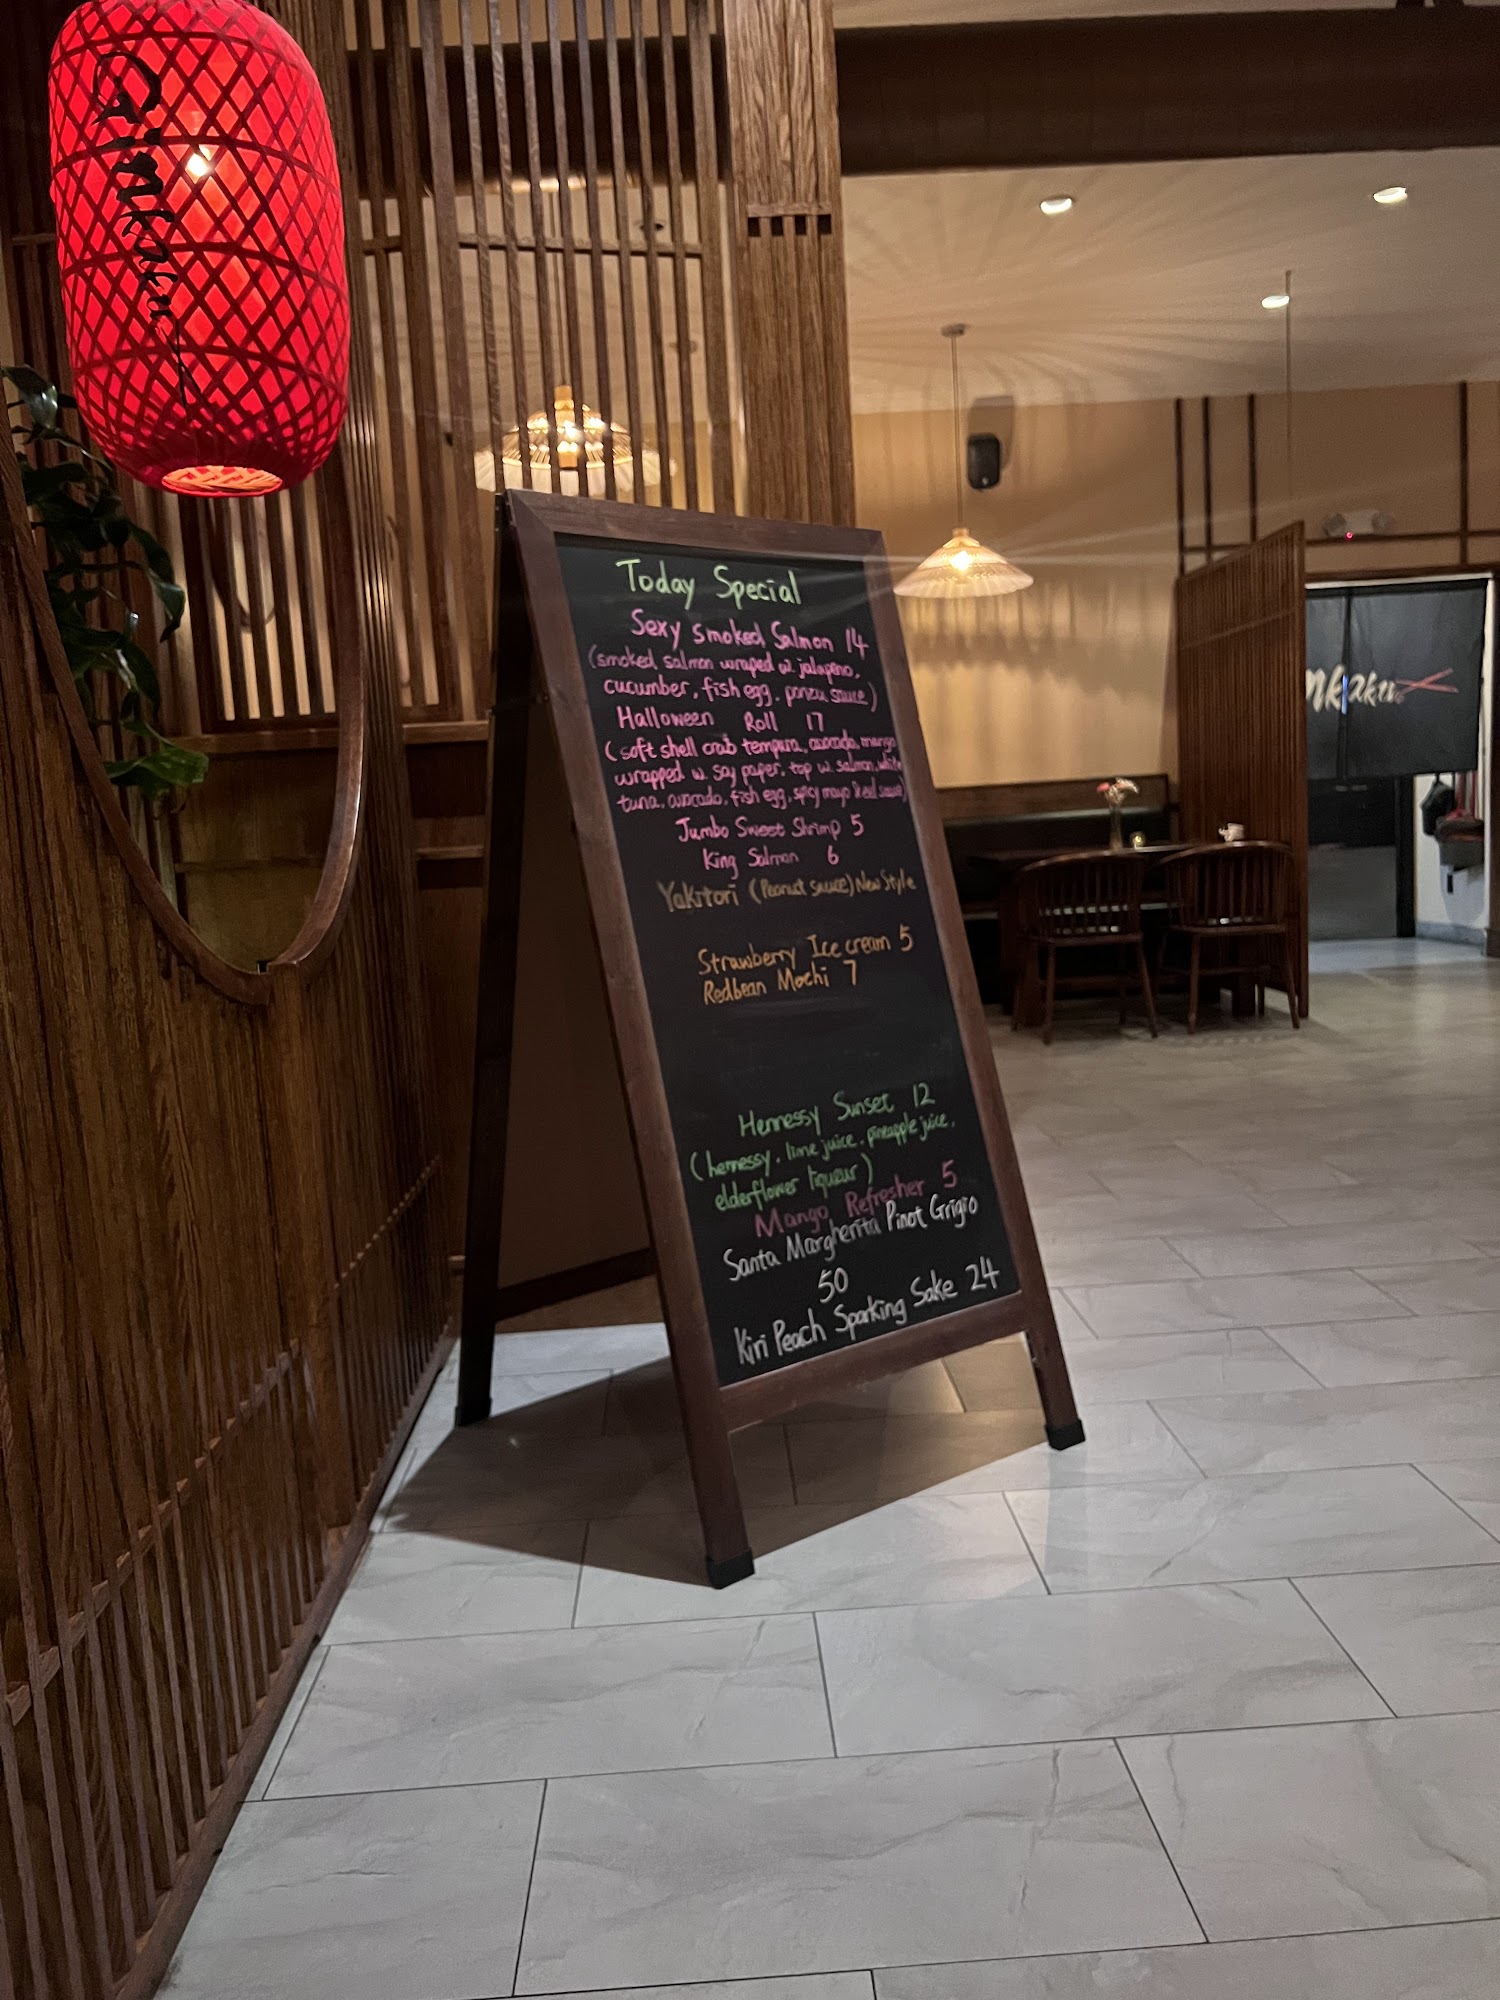 Ginkaku
Today Special
Sexy Smoked Salmon 14
(smoked salmon wraped w. jalapeno,
cucumber, fish egg, ponzu sauce)
Halloween Roll 17
(soft shell crab tempura, avocado, mango
wrapped w. soy paper, top w. salmon, white
tuna, avocado, fish egg, spicy mayo & eel sauce)
Jumbo Sweet Shrimp 5
King Salmon 6
Yakitori (Peanut sauce) New Style
Strawberry Ice cream 5
Redbean Mochi 7
Hennessy Sunset 12
(hennessy, lime juice, pineapple juice,
elderflower liqueur)
Mango Refresher 5
Santa Margherita Pinot Grigio
50
Kiri Peach Sparking Sake 24
nkaku